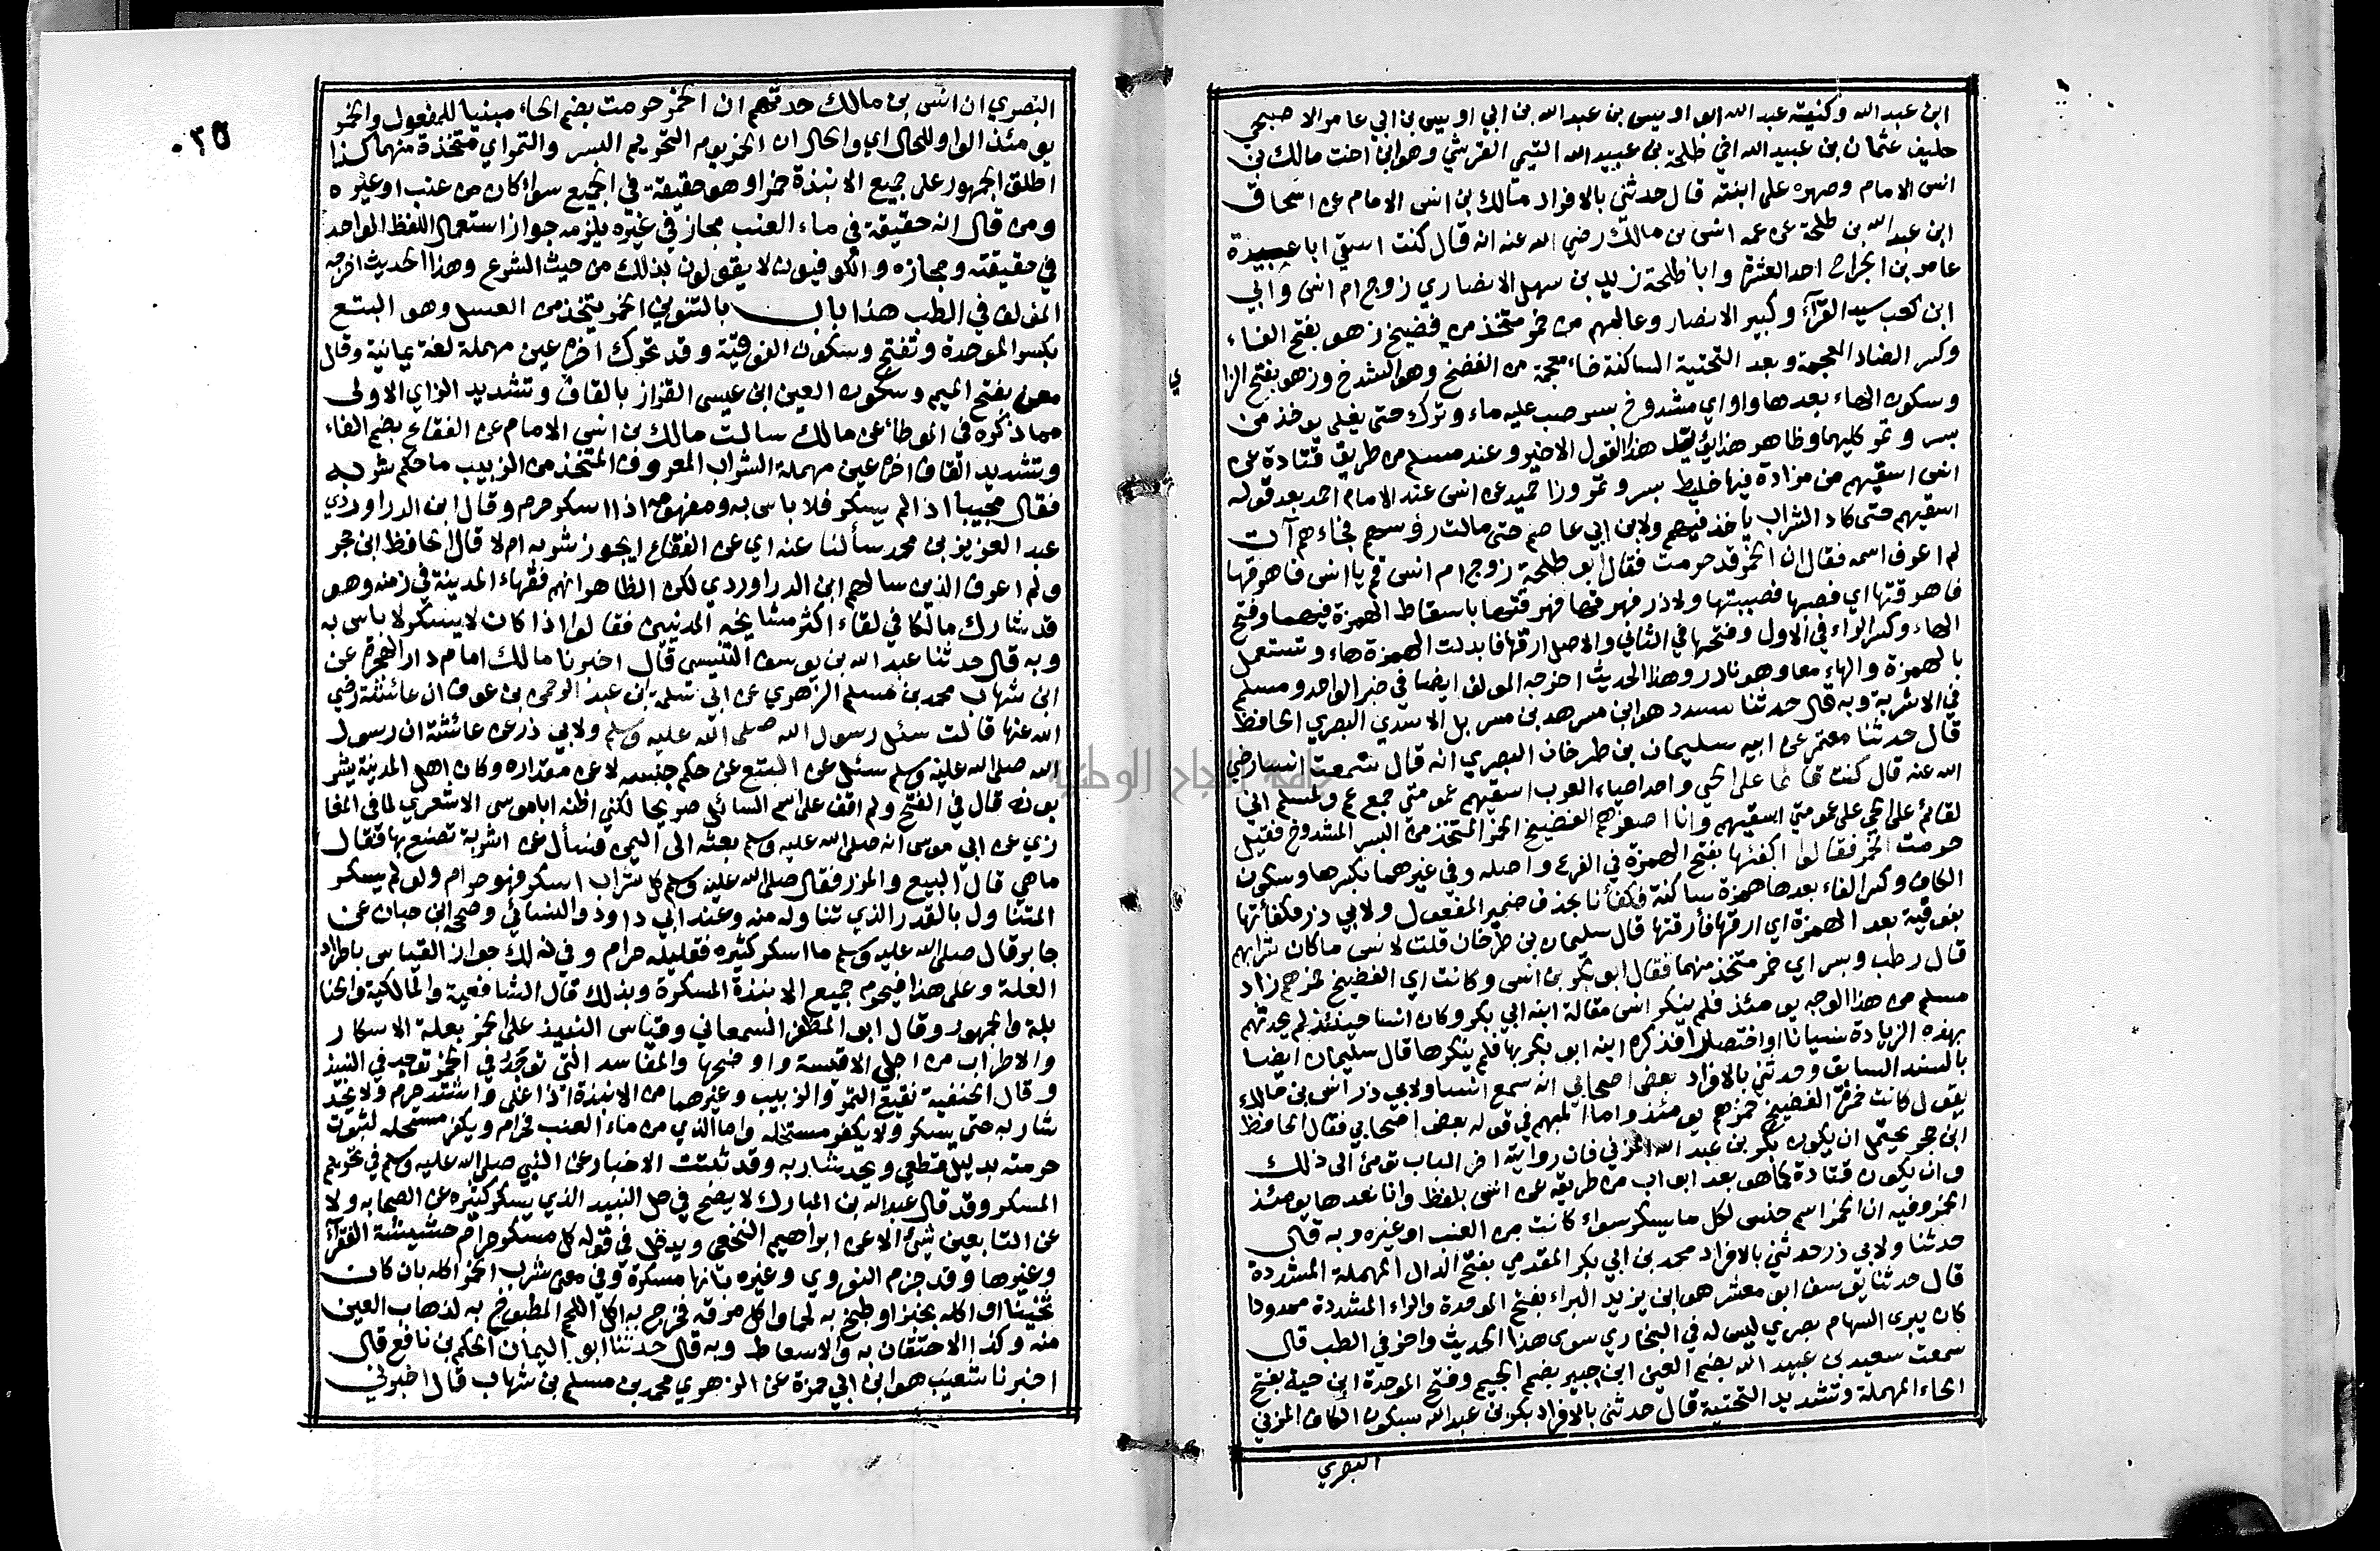 ابن عبد الله وكنيته عبد الله ابو اويس بن عبد الله بن ابي اويس بن ابي عامر الاصبحي
حليف عثمان بن عبيد الله اخي طلحة بن عبيد الله التيمي القرشي وهو ابن اخت مالك بن
انس الامام وصهره على ابنته قال حدثني بالافراد مالك بن انس الامام عن اسحاق
ابن عبد الله بن طلحة عن عمه انس بن مالك رضي الله عنه انه قال كنت اسقي ابا عبيدة
عامر بن الجراح احد العشرة وابا طلحة زيد بن سهل الانصاري زوج ام انس وابي
ابن كعب سيد القرآء وكبير الانصار وعالمهم من خمر متخذ من فضيخ زهو بفتح الفاء
وكسر الضاد المعجمة وبعد التحتية الساكنة خاء معجمة من الفضخ وهو الشدخ وزهو بفتح الزا
ي
وسكون الهاء بعدها واو اي مشدوخ بسر صب عليه ماء وترك حتى يغلي يوخذ من
بسر وتمر كليهما وظاهر هذا القول الاخير وعند مسلم من طريق قتادة عن
انس اسقيهم من مزادة فيها خليط بسر وتمر وزا حميد عن انس عند الامام احمد بعد قوله
اسقيهم حتى كاد الشراب ياخذ فيهم ولابن ابي عاصم حتى مالت رؤسهم فجاءهم آت
لم اعرف اسمه فقال ان الخمر قد حرمت فقال ابو طلحة زوج ام انس قم يا انس فاهرقها
فاهرقتها اي فصبها فصببتها ولا ذر فهرقها فهرقتها باسقاط الهمزة فيهما وفتح
الهاء وكسر الراء في الاول وفتحها في الثاني والاصل ارقها فابدلت الهمزة هاء وتستعمل
بالهمزة والهاء معا وهو نادر وهذا الحديث اخرجه المولف ايضا في خبر الواحد ومسلم
في الاشربة وبه قال حدثنا مسدد هو ابن مسرهد بن مسربل الاسدي البصري الحافظ
قال حدثنا معتمر عن ابيه سليمان بن طرخان البصري انه قال سمعت انسا رضي
الله عنه قال كنت قائما على الحي واحد احياء العرب اسقيهم عمومتي جمع عم ولمسلم اني
لقائم على الحي على عمومتي اسقيهم وانا اصغرهم الفضيخ الخمر المتخذ من البسر المشدوخ فقيل
حرمت الخمر فقالوا اكفئها بفتح الهمزة في الفرع واصله وفي غيرهما بكسرها وسكون
الكاف وكسر الفاء بعدها همزة ساكنة فكفأنا بحذف ضمير المفعول ولابي ذر فكفأتها
بفوقية بعد الهمزة اي ارقها فأرقتها قال سليمان بن طرخان قلت لانس ما كان شرابهم
قال رطب وبسر اي خمر متخذ منهما فقال ابو بكر بن انس وكانت اي الفضيخ خمرهم زاد
مسلم من هذا الوجه يومئذ فلم ينكر انس مقالة ابنه ابي بكر وكان انسا حينئذ لم يحدثهم
بهذه الزيادة نسيانا او اختصارا فذكره ابنه ابو بكر بها فلم ينكرها قال سليمان ايضا
بالسند السابق وحدثني بالافراد بعض اصحابي انه سمع انسا ولابي ذر انس بن مالك
يقول كانت خمر الفضيخ خمرهم يومئذ واما المبهم في قوله بعض اصحابي فقال الحافظ
ابن حجر يحتمل ان يكون بكر بن عبد الله المزني فان روايته اخر الباب تومئ الى ذلك
وان يكون قتادة كما هو بعد ابواب من طريقه عن انس بلفظ وانا نعدها يومئذ
الخمر وفيه ان الخمر اسم جنس لكل ما يسكر سواء كانت من العنب او غيره وبه قال
حدثنا ولابي ذر حدثني بالافراد محمد بن ابي بكر المقدمي بفتح الدال المهملة المشددة
قال حدثنا يوسف ابو معشر هو ابن يزيد البراء بفتح الموحدة والراء المشددة ممدودا
كان يبري السهام بصري ليس له في البخاري سوى هذا الحديث واخر في الطب قال
سمعت سعيد بن عبيد الله بضم العين ابن جبير بضم الجيم وفتح الموحدة ابن حية بفتح
الحاء المهملة وتشديد التحتية قال حدثني بالافراد بكر بن عبد الله بسكون الكاف المزني
البصري
٢٥٠
البصري ان انس بن مالك حدثهم ان الخمر حرمت بضم الحاء مبنيا للمفعول والخمر
يومئذ الواو للحال اي والحال ان الخمر يوم التحريم البسر والتمر اي متخذة منهما كذا
اطلق الجمهور على جميع الانبذة خمرا وهو حقيقة في الجميع سواء كان من عنب او غيره
ومن قال انه حقيقة في ماء العنب مجاز في غيره يلزمه جواز استعمال اللفظ الواحد
في حقيقته ومجازه والكوفيون لا يقولون بذلك من حيث الشرع وهذا الحديث اخرجه
المولف في الطب هذا باب بالتنوين الخمر يتخذ من العسل وهو البتع
بكسر الموحدة وتفتح وسكون الفوقية وقد تحرك اخره عين مهملة لغة يمانية وقال
معن بفتح الميم وسكون العين ابن عيسى القزاز بالقاف وتشديد الزاي الاولى
مما ذكره في الموطا عن مالك سالت مالك بن انس الامام عن الفقاع بضم الفاء
وتشديد القاف اخره عين مهملة الشراب المعروف المتخذ من الزبيب ما حكم شربه
فقال مجيبا اذا لم يسكر فلا باس به ومفهومه اذا اسكر حرم وقال ابن الدراوردي
عبد العزيز بن محمد سألنا عنه اي عن الفقاع ايجوز شربه ام لا قال الحافظ ابن حجر
ولم اعرف الذين سالهم ابن الدراوردي لكن الظاهر انهم فقهاء المدينة في زمنه وهو
قد شارك مالكا في لقاء اكثر مشايخه المدنيين فقالوا اذا كان لا يسكر لا باس به
وبه قال حدثنا عبد الله بن يوسف التنيسي قال اخبرنا مالك امام دار الهجرة عن
ابن شهاب محمد بن مسلم الزهري عن ابي سلمة بن عبد الرحمن بن عوف ان عائشة رضي
الله عنها قالت سئل رسول الله صلى الله عليه وسلم ولابي ذر عن عائشة ان رسول
الله صلى الله عليه وسلم سئل عن البتع عن حكم جنسه لا عن مقداره وكان اهل المدينة يشر
بونه قال في الفتح ولم اقف على اسم السائل صريحا لكني اظنه ابا موسى الاشعري لما في المغا
زي عن ابي موسى انه صلى الله عليه وسلم بعثه الى اليمن فسأل عن اشربة تصنع بها فقال
ما هي قال البيع والمزر فقال صلى الله عليه وسلم كل شراب اسكر فهو حرام ولو لم يسكر
المتناول بالقدر الذي تناوله منه وعند ابي داود والنسائي وصححه ابن حبان عن
جابر قال صلى الله عليه وسلم ما اسكر كثيره فقليله حرام وفي ذلك جواز القياس باطراد
العلة وعلى هذا فيحرم جميع الانبذة المسكرة وبذلك قال الشافعية والمالكية والحنا
بلة والجمهور وقال ابو المظفر السمعاني وقياس النبيذ على الخمر بعلة الاسكار
والاطراب من اجلى الاقيسة واوضحها والمفاسد التي توجد في الخمر توجد في النبيذ
وقال الحنفية نقيع التمر والزبيب وغيرهما من الانبذة اذا غلى واشتد حرم ولا يحد
شاربه حتى يسكر ولا يكفر مستحله واما الذي من ماء العنب فحرام ويكفر مستحله لثبوت
حرمته بدليل قطعي ويحد شاربه وقد ثبتت الاخبار عن النبي صلى الله عليه وسلم في تحريم
المسكر وقد قال عبد الله بن المبارك لا يصح في حل النبيذ الذي يسكر كثيره عن الصحابه ولا
عن التابعين شئ الا عن ابراهيم النخعي ويدخل في قوله كل مسكر حرام حشيشة الفقرآء
وغيرها وقد جزم النووي وغيره بانها مسكرة وفي معنى شرب الخمر اكله بان كان
ثخينا او اكله بخبز او طبخ به لحما واكل مرقه فخرج به اكل اللحم المطبوخ به لذهاب العين
منه وكذا الاحتقان به والاسعاط وبه قال حدثنا ابو اليمان الحكم بن نافع قال
اخبرنا شعيب هو ابن ابي حمزة عن الزهري محمد بن مسلم بن شهاب قال اخبرني
جامعة النجاح الوطنية